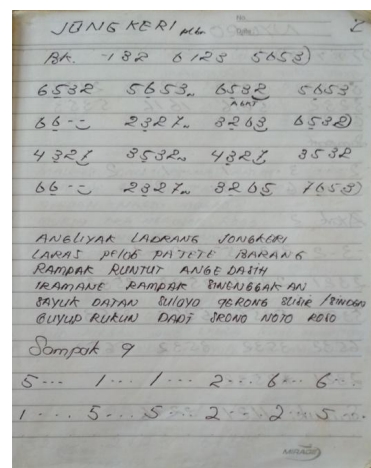 JONGKERI pl br
2
BK. -132 6123 5653)
6532 5653 6532 5653
66-- 2327 3263 6532)
4327 3532 4327 3532
66-- 2327 3265 7653)
ANGLIYAK LADRANG JONGKERI
LARAS PELOG PATETE BARANG
RAMPAK RUNTUT ANGEDASIH
IRAMANE RAMPAK SINENGGAKAN
SAYUK DATAN SULOYO GERONG SUSIE / SINDEN
GUYUP RUKUN DADI SRONO NOTO ROSO
Sampak 9
5... 1... 1... 2... 6... 6...
1... 5... 5... 2... 2... 5...
MIRAGE